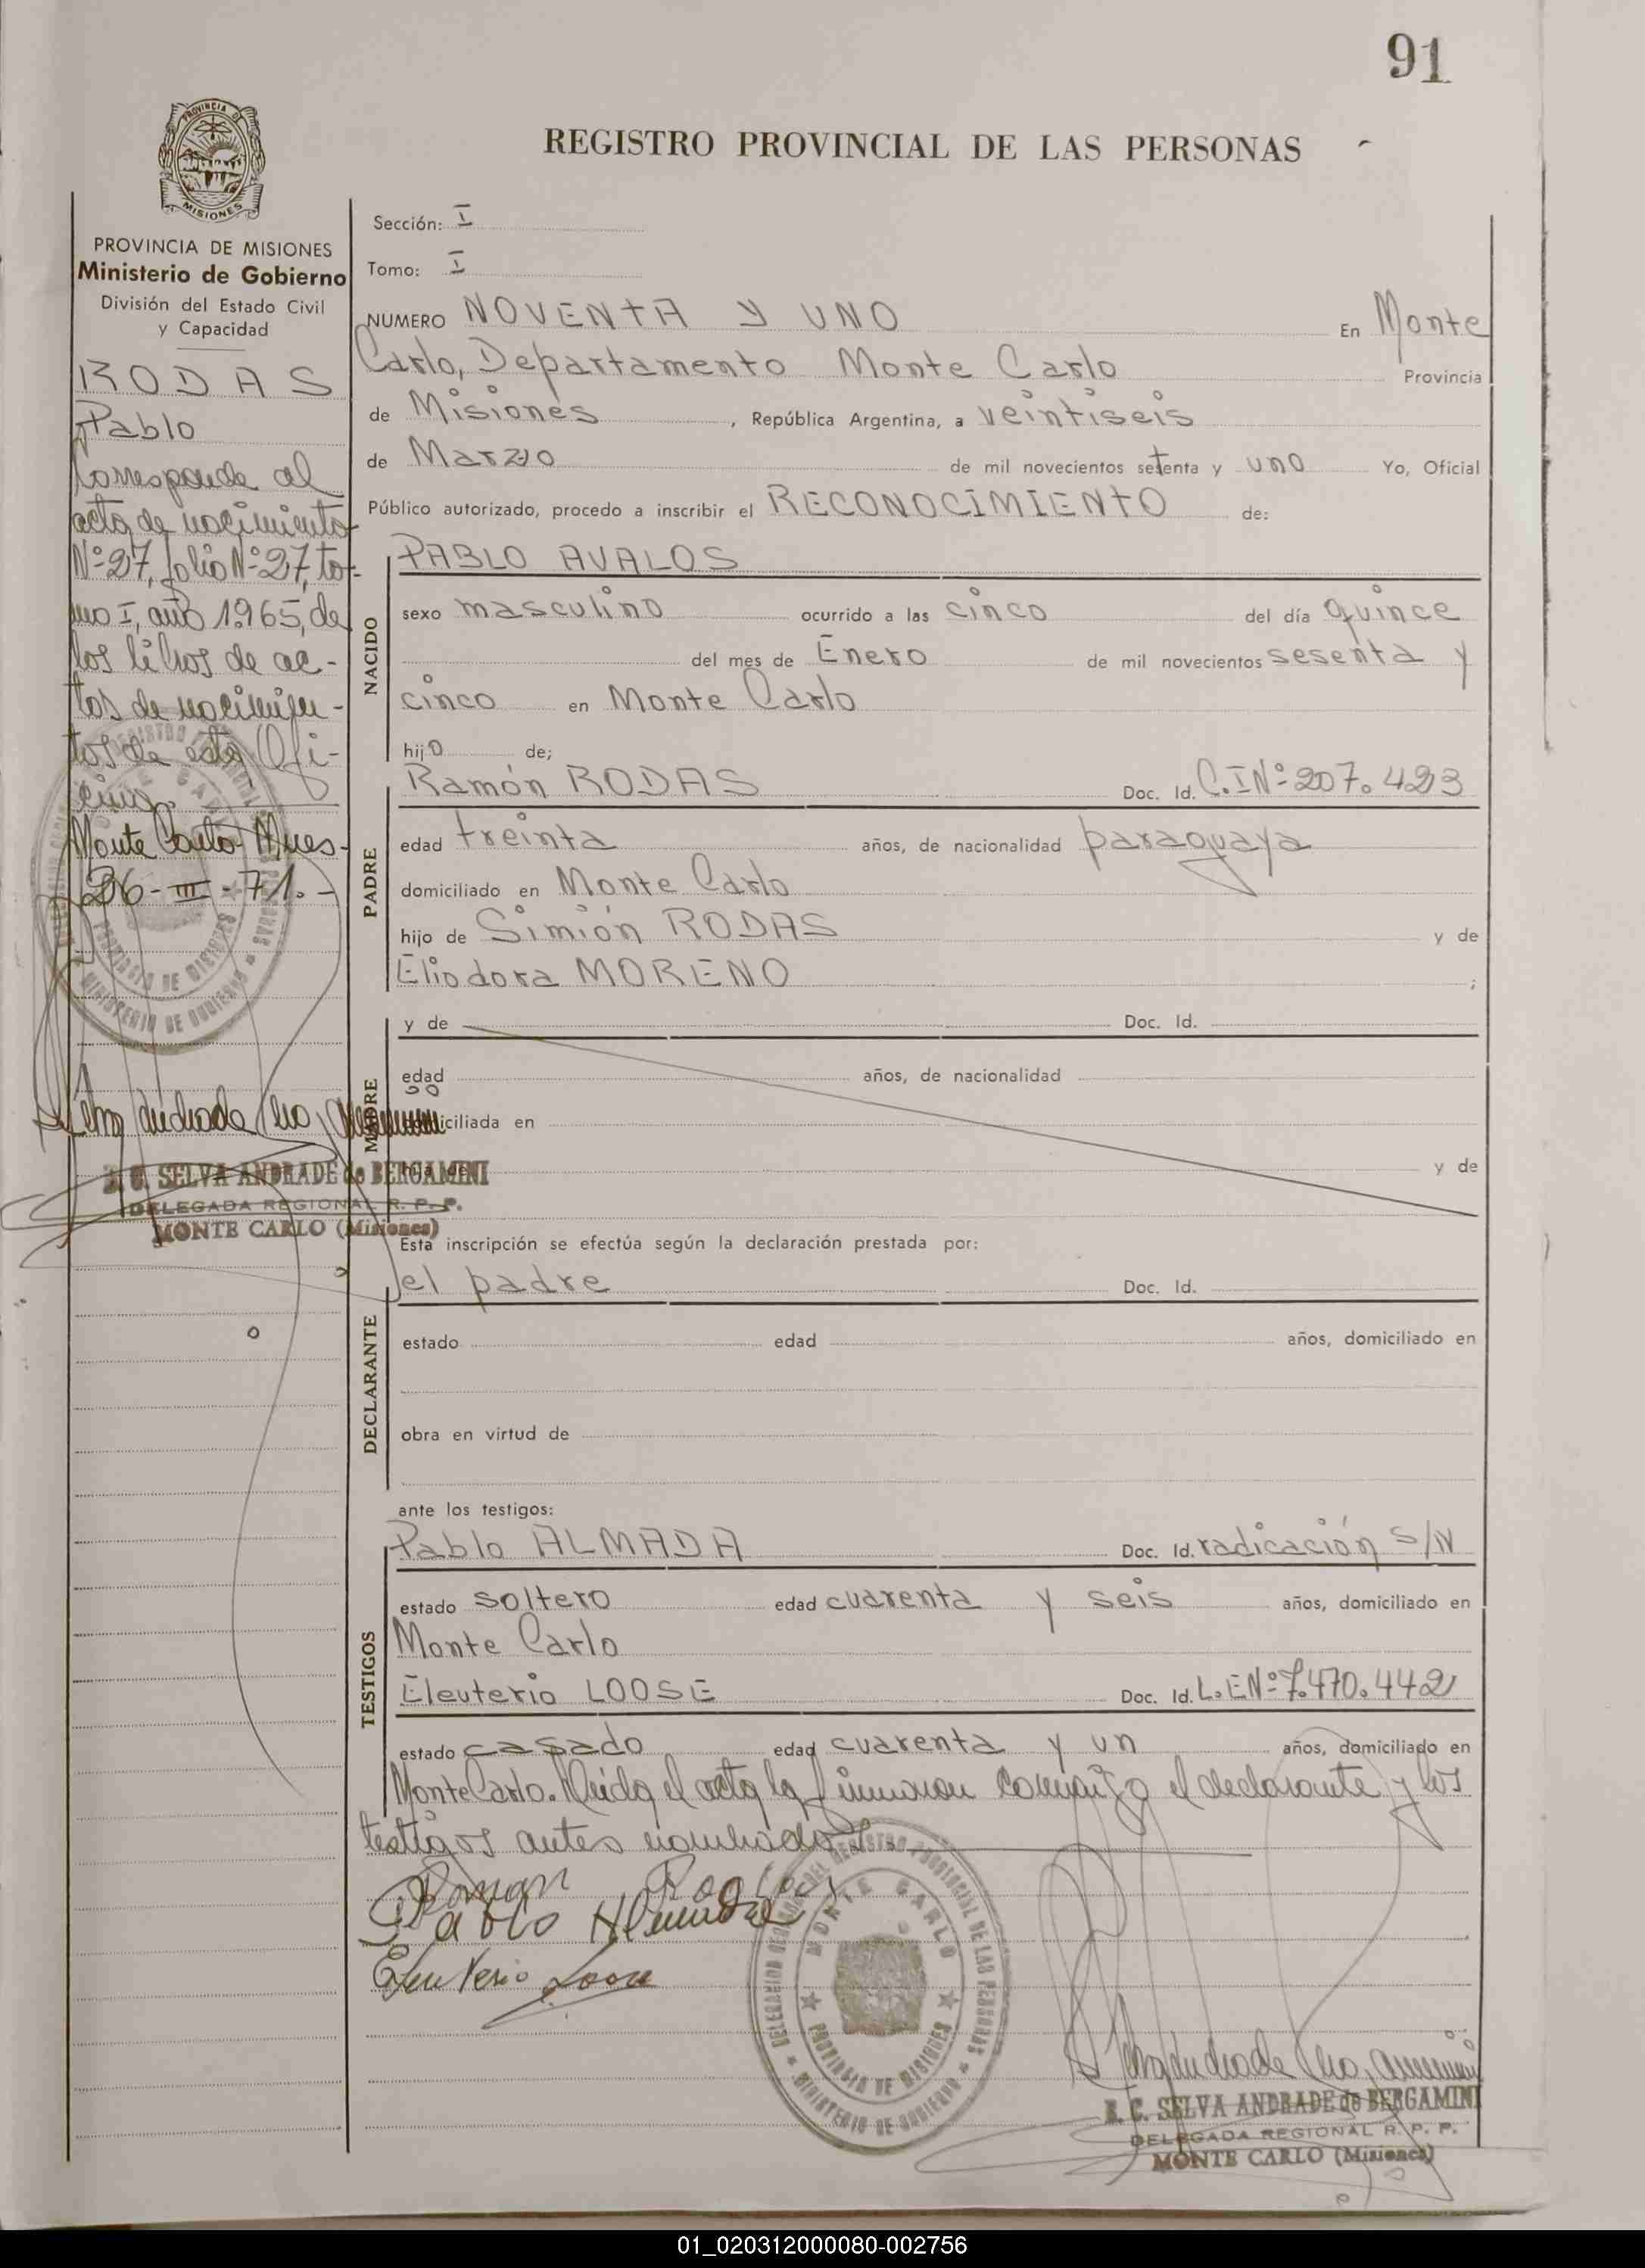 91
PROVINCIA DE
MISIONES
REGISTRO PROVINCIAL DE LAS PERSONAS
PROVINCIA DE MISIONES
Ministerio de Gobierno
División del Estado Civil
y Capacidad
RODAS
Pablo
Corresponde al
acta de nacimiento
Nº27, folio Nº27, to-
mo I, año 1965, de
los libros de ac-
tas de nacimien-
tos de esta Ofi-
cina
Monte Carlo Mnes-
26-III-71.-
S. C. SELVA ANDRADE de BERGAMINI
DELEGADA REGIONAL R. P. P.
MONTE CARLO (Misiones)
Sección: I
Tomo: I
NUMERO NOVENTA Y UNO En Monte
Carlo, Departamento Monte Carlo Provincia
de Misiones, República Argentina, a veintiseis
de Marzo de mil novecientos setenta y uno Yo, Oficial
Público autorizado, procedo a inscribir el RECONOCIMIENTO de:
NACIDO
PABLO AVALOS
sexo masculino ocurrido a las cinco del día quince
del mes de Enero de mil novecientos sesenta y
cinco en Monte Carlo
hijo de;
PADRE
Ramón RODAS Doc. Id. C.I Nº 207.423
edad treinta años, de nacionalidad paraguaya
domiciliado en Monte Carlo
hijo de Simión RODAS y de
Eliodora MORENO ;
MADRE
y de Doc. Id.
edad años, de nacionalidad
domiciliada en
hija de y de
Esta inscripción se efectúa según la declaración prestada por:
DECLARANTE
el padre Doc. Id.
estado edad años, domiciliado en
obra en virtud de
ante los testigos:
TESTIGOS
Pablo ALMADA Doc. Id. radicación S/N
estado soltero edad cuarenta y seis años, domiciliado en
Monte Carlo
Eleuterio LOOSE Doc. Id. L.E Nº 7.470.442
estado casado edad cuarenta y un años, domiciliado en
Monte Carlo. Leída el acta la firmaron conmigo el declarante y los
testigos antes nombrados
Roman Rodas
Pablo Almada
Eleuterio Loose
DELEGACION REGIONAL DEL REGISTRO PROVINCIAL DE LAS PERSONAS
MONTE CARLO
PROVINCIA DE MISIONES
MINISTERIO DE GOBIERNO
S. C. SELVA ANDRADE de BERGAMINI
DELEGADA REGIONAL R. P. P.
MONTE CARLO (Misiones)
01_020312000080-002756